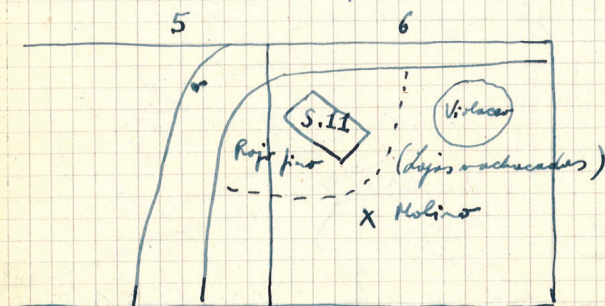 5 6
S.11
Violaceo
Rojo fino
(Lajas machacadas)
X Molino